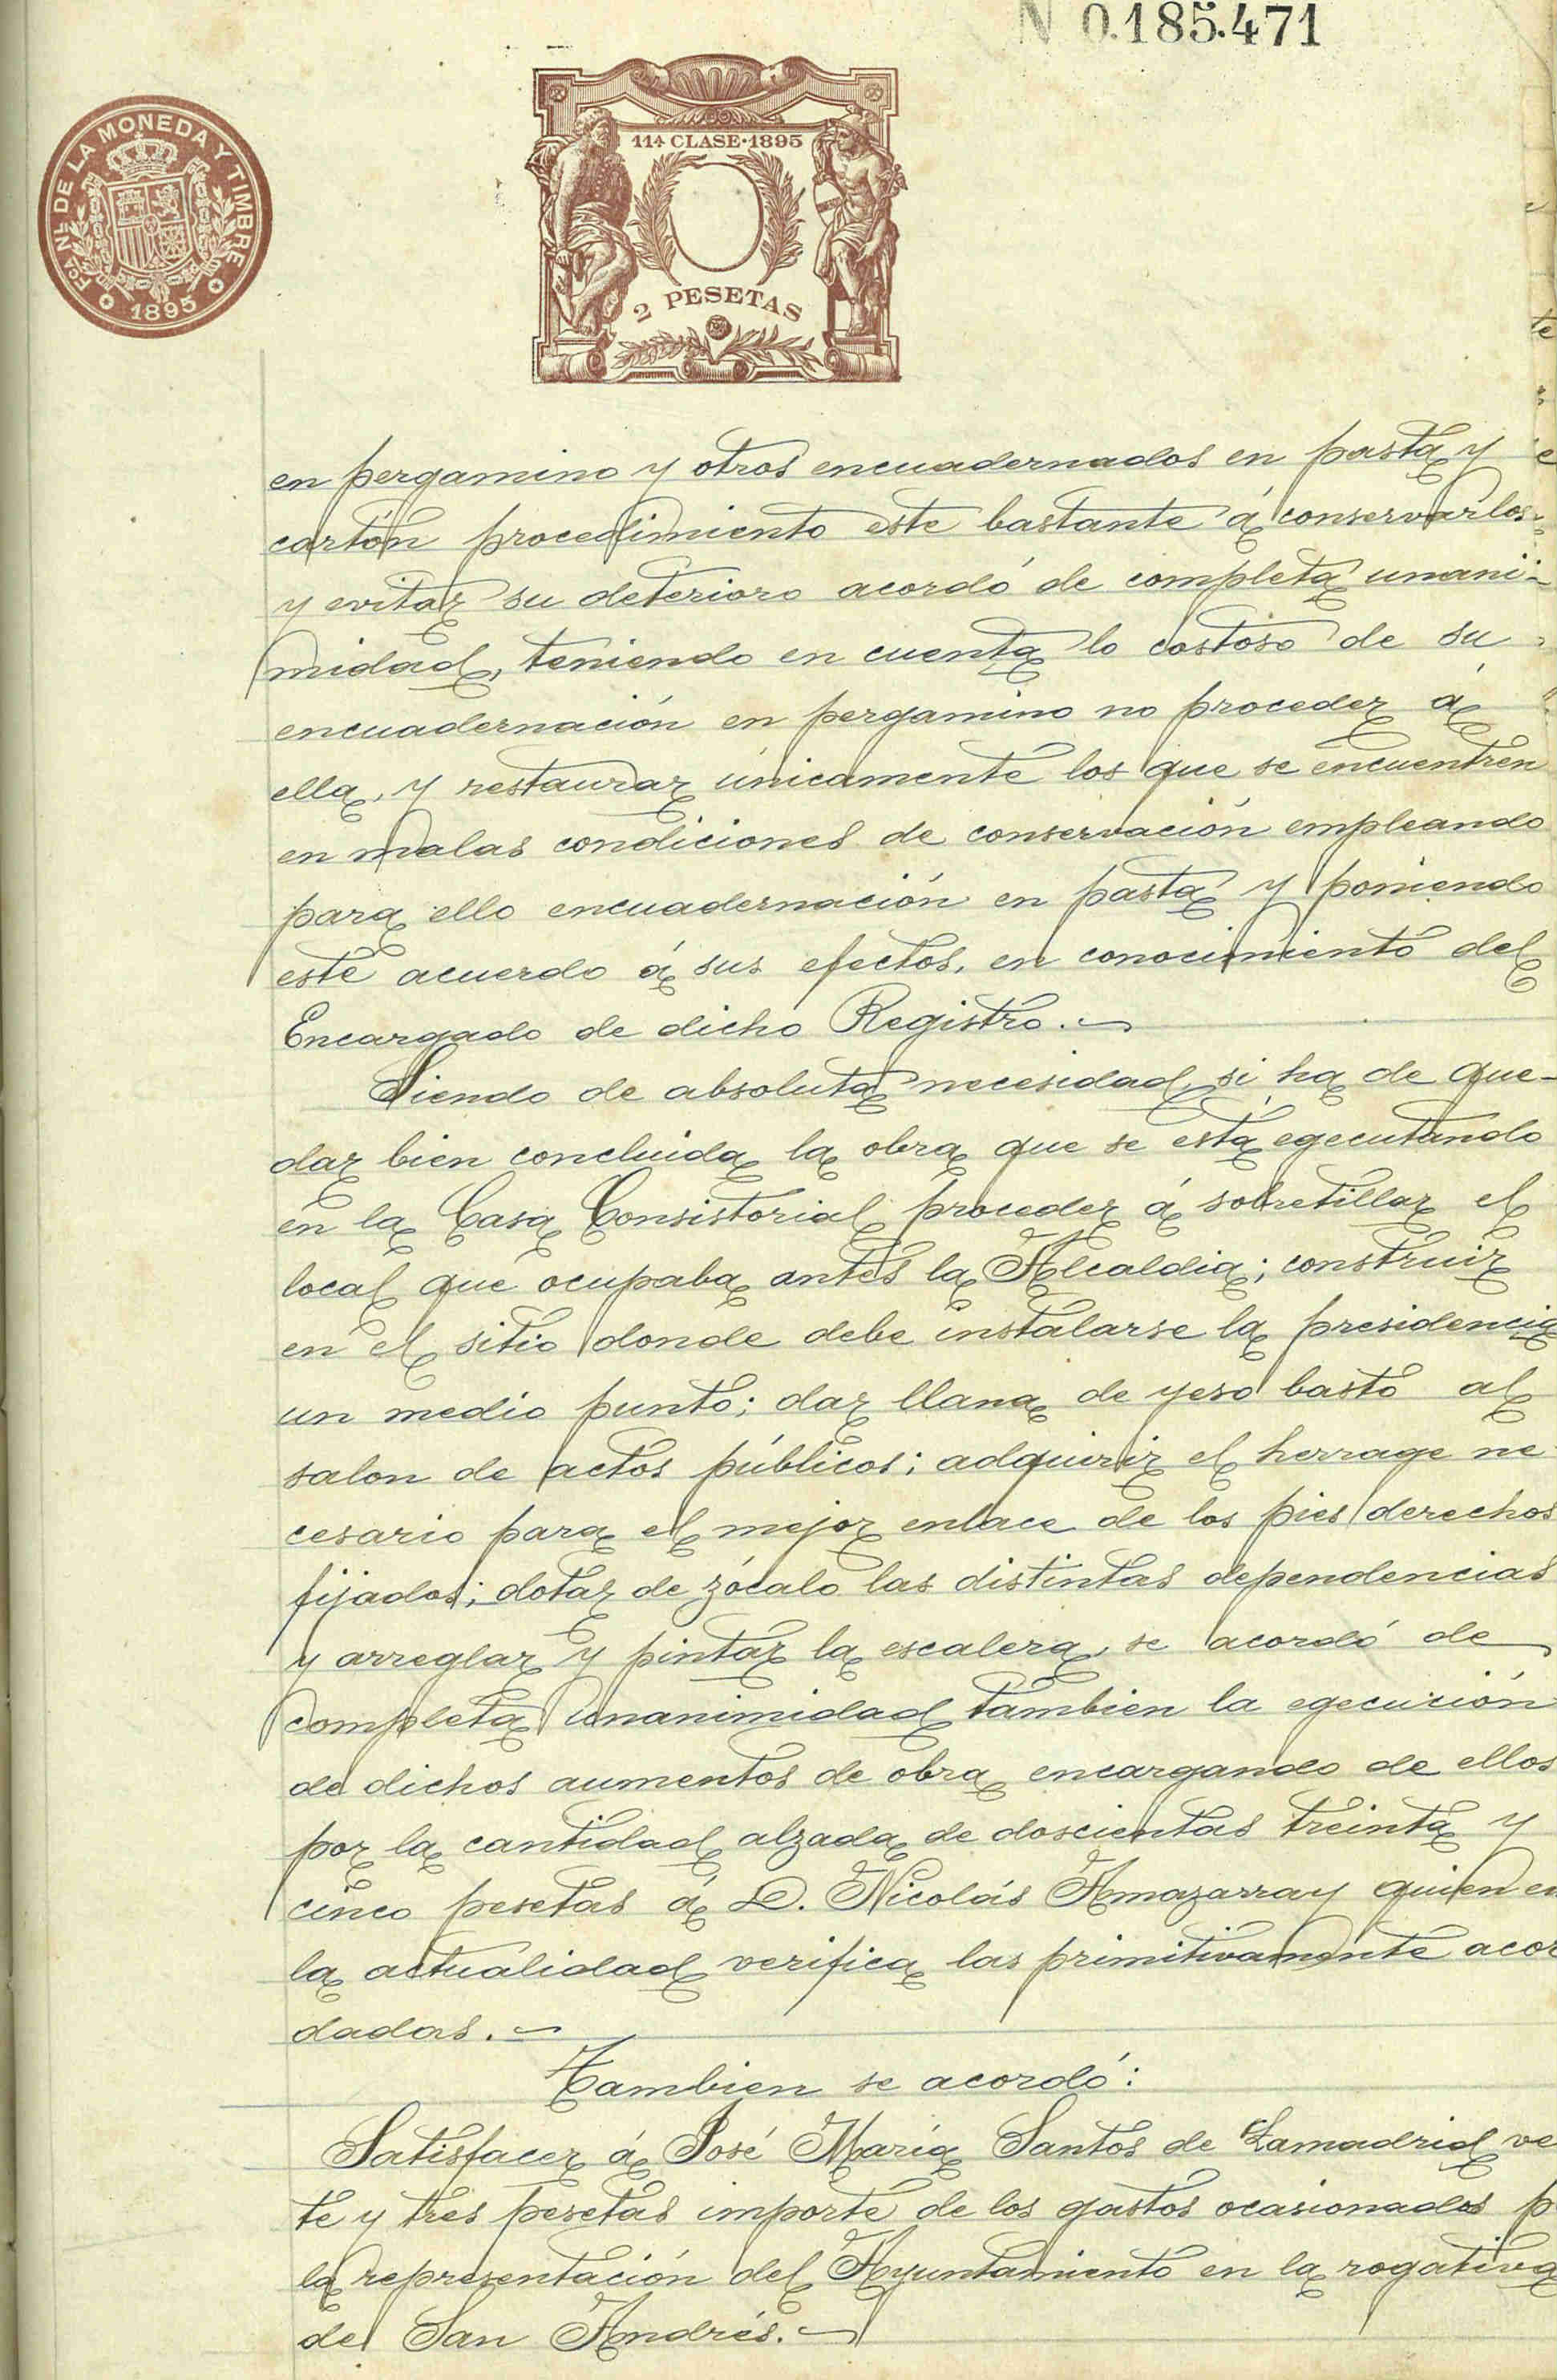 N 0.185.471
FCA NL DE LA MONEDA Y TIMBRE
1895
11ª CLASE·1895
2 PESETAS
en pergamino y otros encuadernados en pasta y
cartón procedimiento este bastante á conservarlos
y evitar su deterioro acordó de completa unani-
midad, teniendo en cuenta lo costoso de su
encuadernación en pergamino no proceder á
ella, y restaurar únicamente los que se encuentren
en malas condiciones de conservación empleando
para ello encuadernación en pasta y poniendo
este acuerdo á sus efectos, en conocimiento del
Encargado de dicho Registro.
Siendo de absoluta necesidad, si ha de que-
dar bien concluida la obra que se está egecutando
en la Casa Consistorial proceder á sobretillar el
local que ocupaba antes la Alcaldia; construir
en el sitio donde debe instalarse la presidencia
un medio punto; dar llana de yeso basto al
salon de actos públicos; adquirir el herrage ne
cesario para el mejor enlace de los pies derechos
fijados; dotar de zócalo las distintas dependencias
y arreglar y pintar la escalera, se acordó de
completa unanimidad tambien la egecución
de dichos aumentos de obra encargando de ellos
por la cantidad alzada de doscientas treinta y
cinco pesetas á D. Nicolás Amazarray quien en
la actualidad verifica las primitivamente acor
dadas.
Tambien se acordó:
Satisfacer á José María Santos de Lamadrid ve
te y tres pesetas importe de los gastos ocasionados p
la representación del Ayuntamiento en la rogativa
de San Andrés.